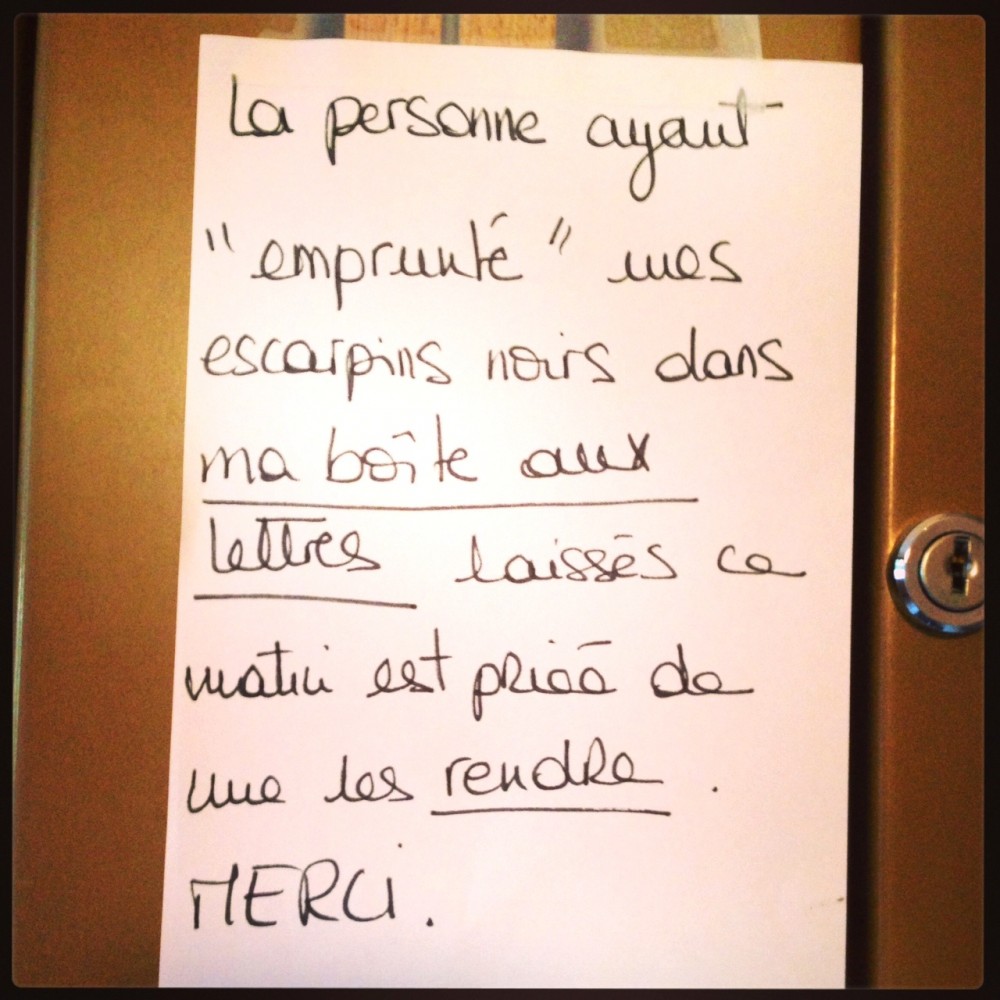 La personne ayant
"emprunté" mes
escarpins noirs dans
ma boîte aux
lettres laissés ce
matin est priée de
me les rendre.
MERCI.